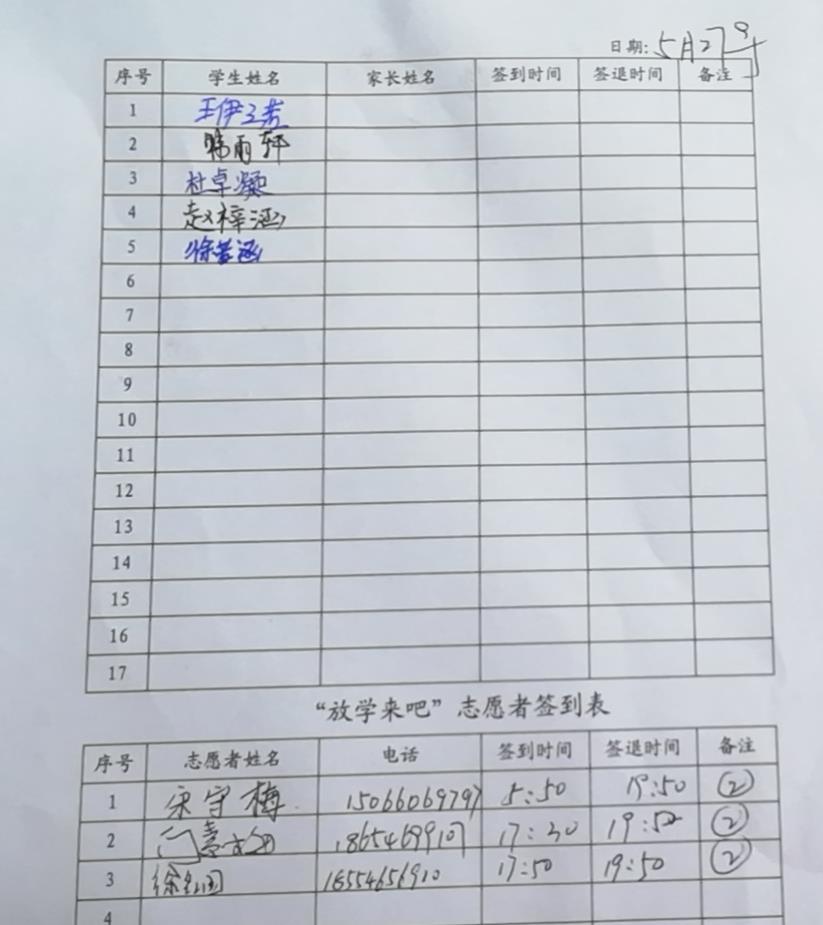 日期: 5月27号
序号 学生姓名 家长姓名 签到时间 签退时间 备注
1
2 韩雨轩
3 杜卓凝
4 赵梓涵
5 徐若涵
6
7
8
9
10
11
12
13
14
15
16
17
“放学来吧”志愿者签到表
序号 志愿者姓名 电话 签到时间 签退时间 备注
1 宋守梅 15066069797 5:50 19:50 ②
2 17:30 19:50 ②
3 18554656910 17:50 19:50 ②
4